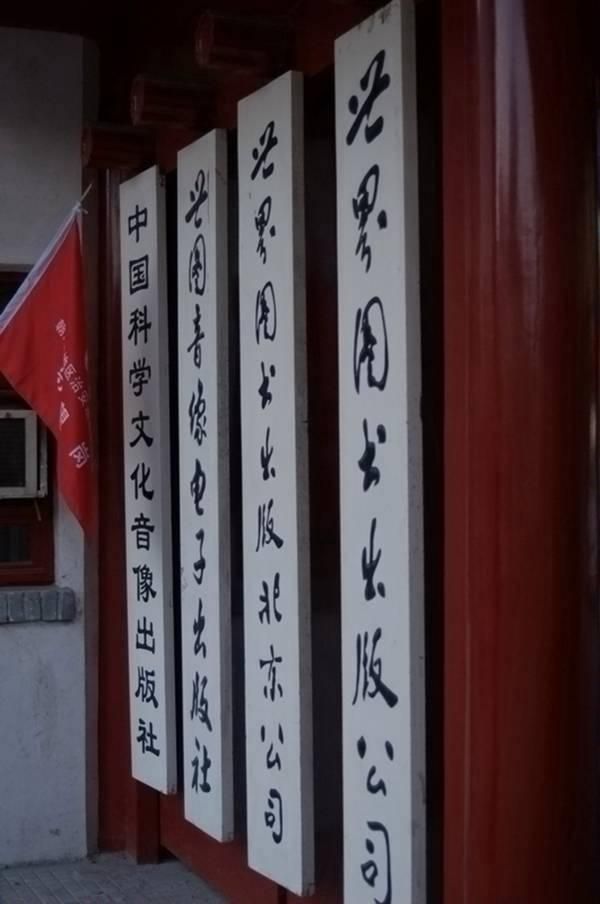 世界图书出版公司
世界图书出版北京公司
世图音像电子出版社
中国科学文化音像出版社
区治安
岗